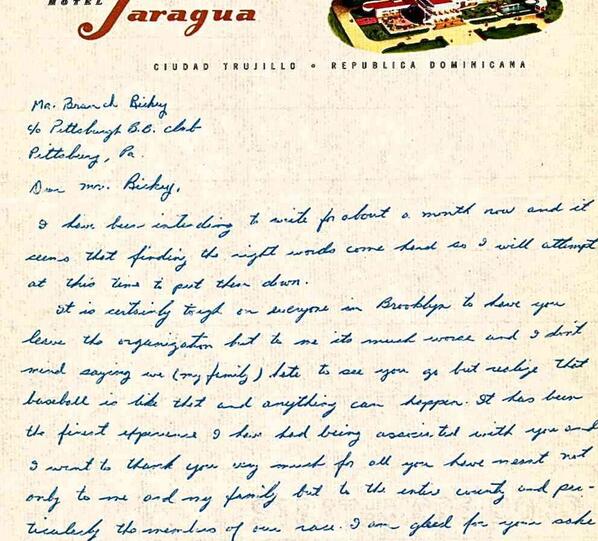 HOTEL
Jaragua
CIUDAD TRUJILLO • REPUBLICA DOMINICANA
Mr. Branch Rickey
c/o Pittsburgh B.B. club
Pittsburg, Pa.
Dear Mr. Rickey,
I have been intending to write for about a month now and it
seems that finding the right words come hard so I will attempt
at this time to put them down.
It is certainly tough on everyone in Brooklyn to have you
leave the organization but to me its much worse and I don't
mind saying we (my family) hate to see you go but realize that
baseball is like that and anything can happen. It has been
the finest experience I have had being associated with you and
I want to thank you very much for all you have meant not
only to me and my family but to the entire country and par-
ticularly the members of our race. I am glad for your sake